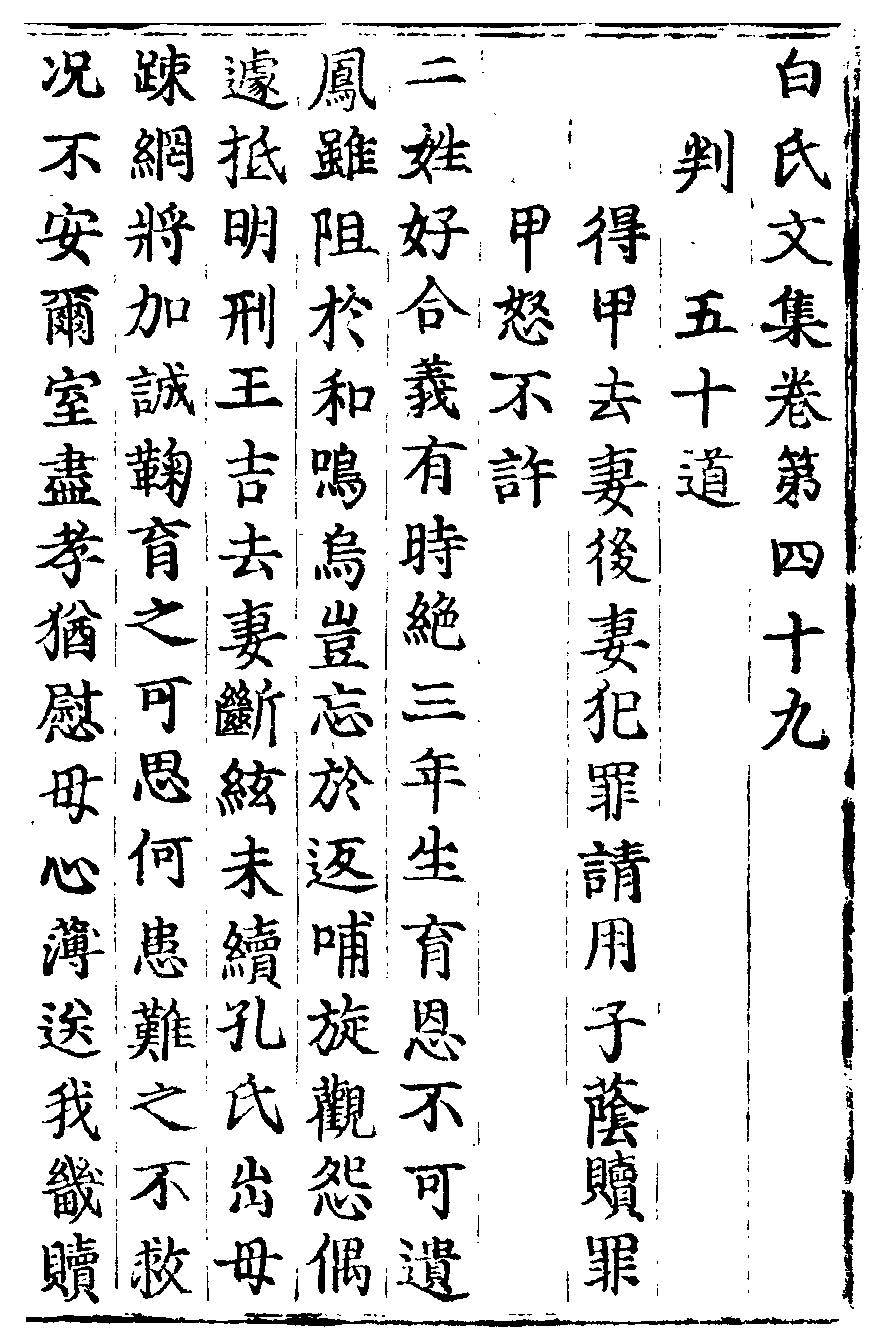 白氏文集卷第四十九
判 五十道
得甲去妻後妻犯罪請用子蔭贖罪
甲怒不許
二姓好合義有時絶三年生育恩不可遺
鳳雖阻於和鳴烏豈忘於返哺旋觀怨偶
遽抵明刑王吉去妻斷絃未續孔氏出母
踈網將加誠鞠育之可思何患難之不救
况不安爾室盡孝猶慰母心薄送我畿贖